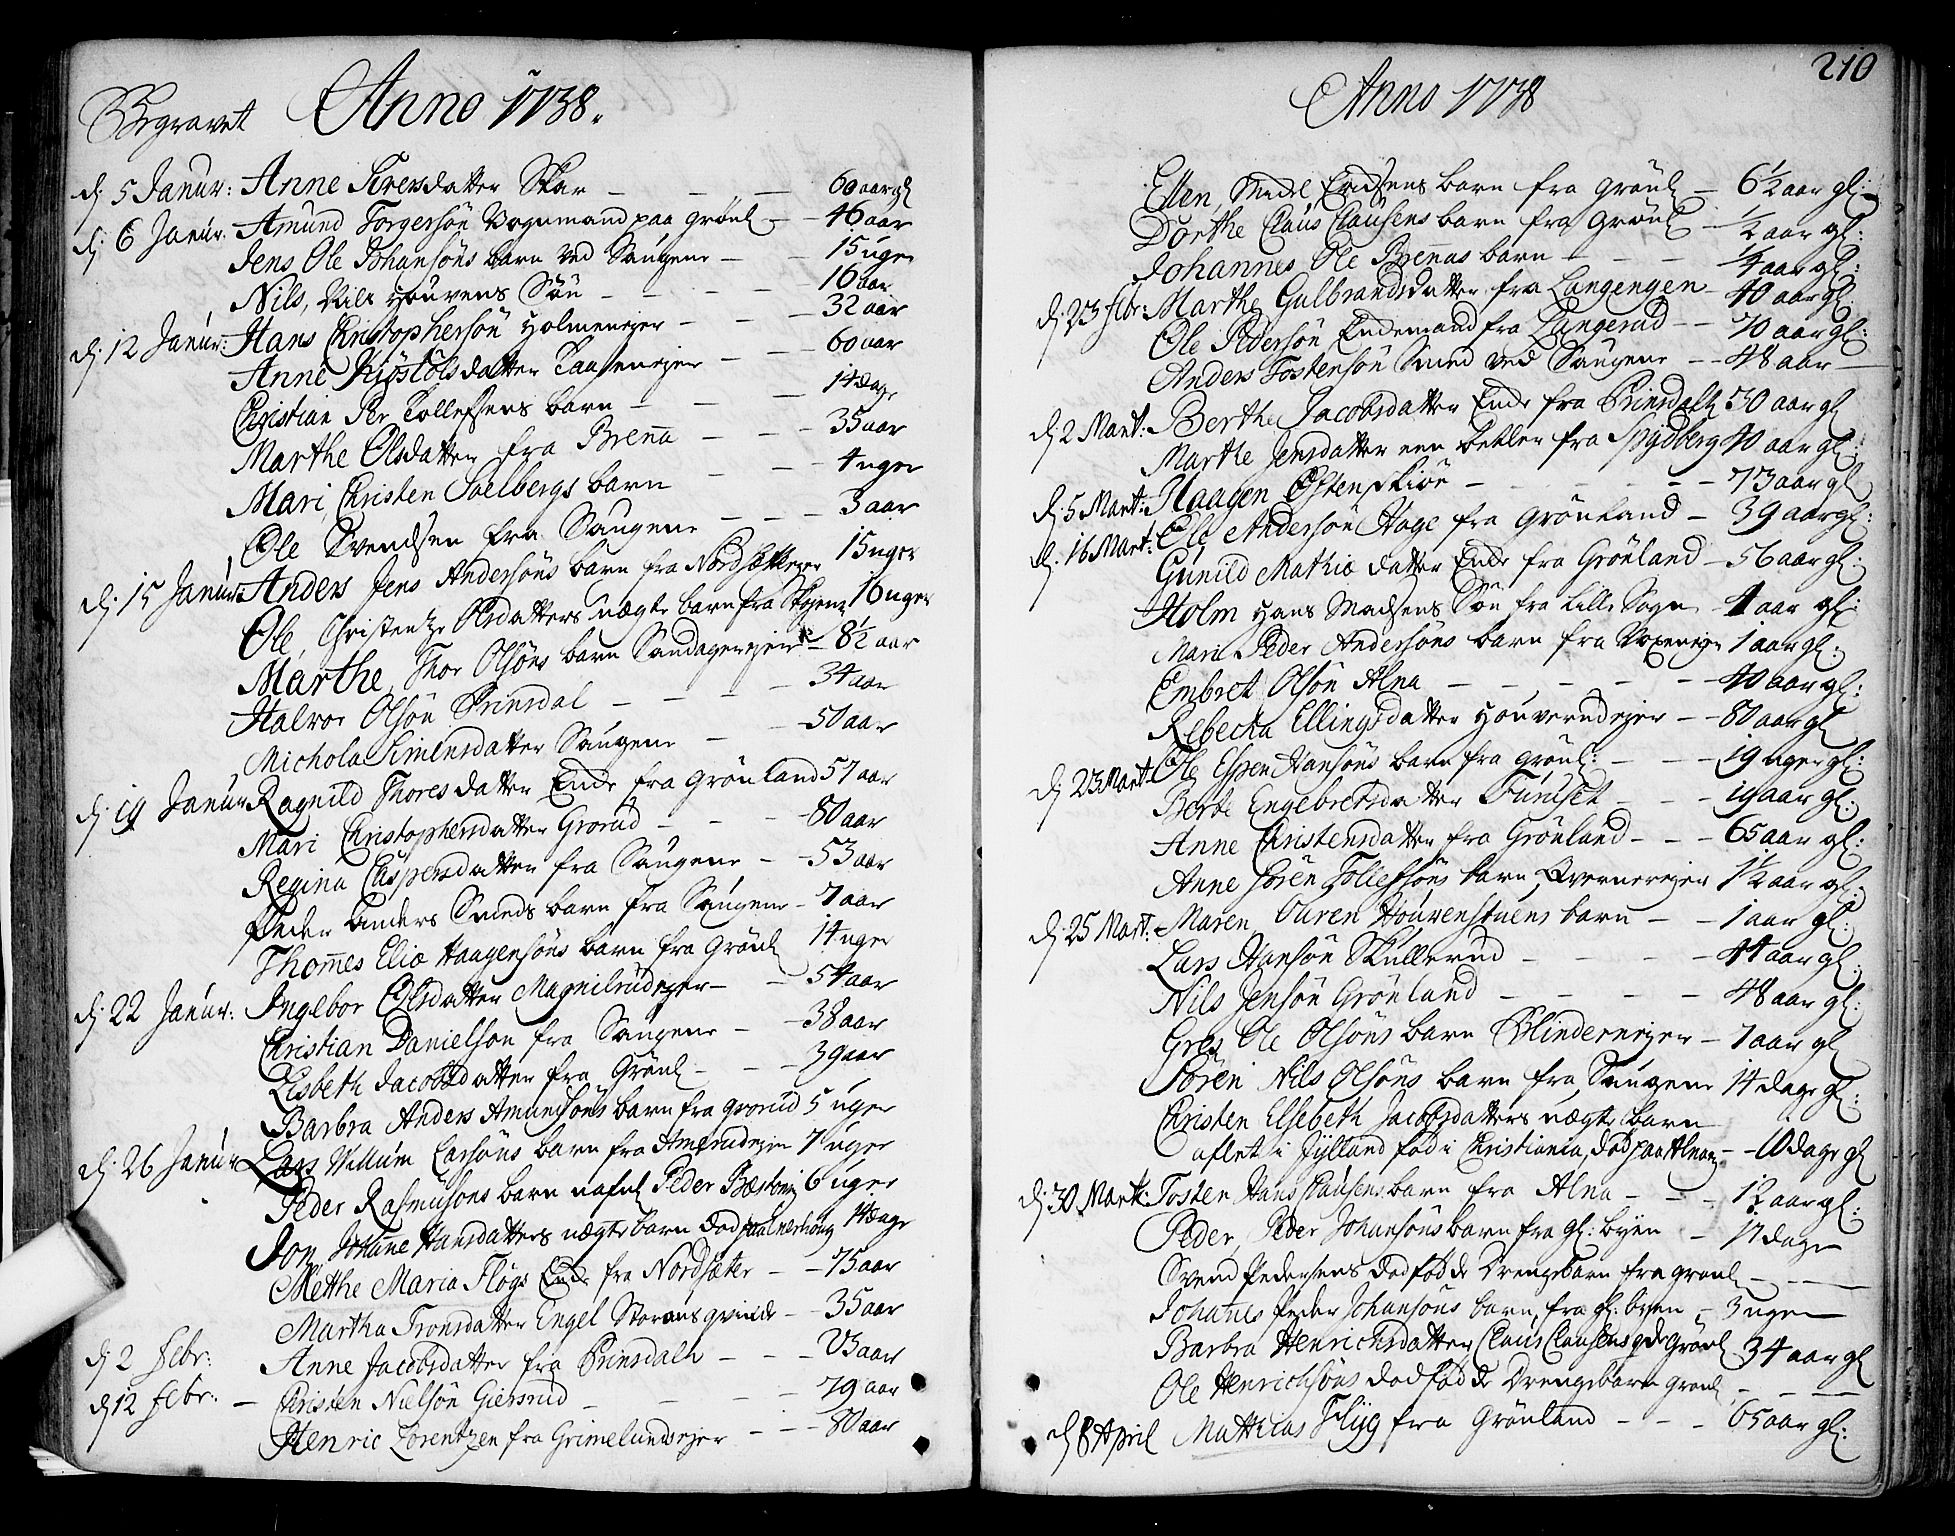 Begravet Anno 1738.
d. 5 Janur: Anne Siversdatter Skar – – – 60 aar gl
d. 6 Janur. Amund Torgersön Vognmand paa Grönl – – 46 aar
Jens, Ole Johansöns barn ved Saugene – – 15 uger
Nils, Nils Houvens Sön – – – 16 aar
d. 12 Janur: Hans Christophersön Holmenejer – – – 32 aar
Anne Kiöstölsdatter Taasenejer – – – 60 aar
Christian Per Tollefsens barn – – – 14 dage
Marthe Olsdatter fra Brenna – – – 35 aar
Mari, Christen Soelbergs barn – – 4 uger
Ole Svendsen fra Saugene – – – 3 aar
d. 15 Janur: Anders Jens Andersöns barn fra Nordsætterejer 15 uger
Ole, Christentze Olsdatters uægte barn fra Skøjenz 16 uger
Marthe, Thor Olsöns barn Sandagerejer – 8½ aar
Halvor Olsön Prinsdal – – – 34 aar
Michola Simensdatter Saugene – – 50 aar
d. 19 Janur Ragnild Thoresdatter Enke fra Grönland 57 aar
Mari Christophersdatter Grorud – – – 80 aar
Regina Caspersdatter fra Saugene – – 53 aar
Peder Anders Smeds barn fra Saugene – 7 aar
Thomes Eliæ Haagensöns barn fra Grönl 14 uger
d. 22 Janur: Ingebor Olsdatter Magnilrudejer – – 54 aar
Christian Danielsön fra Saugene – – 38 aar
Lisbeth Jacobsdatter fra Grönl – – – 39 aar
Barbra Anders Amundsöns barn fra Grorud 5 uger
d. 26 Janur Lars Willum Larsöns barn fra Amerudejer 7 uger
Peder Rasmusöns barn Peder 6 uger
Jon, Johanne Hansdatters uægte barn død 14 dage
Metthe Maria Flögs Enke fra Nordsæter – – 75 aar
Martha Tronsdatter Engel Storans qvinde – – 35 aar
d 2 Febr: Anne Jacobsdatter fra Prinsdalh – – – 83 aar
d 12 Febr: – Christen Nielsön Giersrud – – – 79 aar
Henric Lorentzen fra Grimelundsejer – – – 80 aar
210
Anno 1738
Ellen, Madz Eridsens barn fra Grönl – 6½ aar gl:
Dorthe Claus Clausens barn fra Grönl – ½ aar gl:
Johannes Ole Brennas barn – – – ¼ aar gl:
d. 23 Febr: Marthe Gulbrandsdatter fra Langengen – 40 aar gl:
Ole Pedersön Enkemand fra Langerud – – 70 aar gl:
Anders Tostensön Smed ved Saugene – – 48 aar –
d. 2 Mart: Berthe Jacobsdatter Enke fra Prinsdalh 50 aar gl
Marthe Jensdatter een betler fra Spydberg 40 aar gl:
d. 5 Mart: Haagen Östenskiör – – – – 73 aar gl
d. 16 Mart: Ole Andersön Hage fra Grönland – 39 aar gl:
Gunild Mathiædatter Enke fra Grönland – 56 aar gl:
Holm Hans Madsens Sön fra Lille Sogn – 4 aar gl:
Mari Peder Andersöns barn fra Voxenejer 1 aar gl:
Embret Olsön Alna – – – – 40 aar gl:
Rebecka Ellingsdatter Houverudejer – – 80 aar gl
d 23 Mart Ole Espen Hansöns barn fra Grönl: – – – 19 uger gl:
Berte Engebretsdatter Furuset – – – 19 aar gl:
Anne Christensdatter fra Grönland – – – 65 aar gl:
Anne Sören Tollefsöns barn Qvernerejer 1½ aar gl:
d. 25 Mart: – Maren, Ouren Houvenstuens barn – – 1 aar gl:
Lars Hansön Skullerud – – – – 44 aar gl:
Nils Jensön Grönland – – – – 48 aar gl:
Groes Ole Olsöns barn Blindernejer – 7 aar gl
Sören Nils Olsöns barn fra Saugene 14 dage gl:
Christen Elsebeth Jacobsdatters uægte barn
aflet i Jylland föd i Christiania, död paa Alna – 10 dage gl
d. 30 Mart: Tosten Hans Clausens barn fra Alna – – – 1½ aar gl:
Peder, Peder Johansöns barn fra gl: byen – 17 dage
Svend Pedersens dödfödde Drengebarn fra Grönl – – –
Johanes Peder Johansöns barn, fra gl: byen – 3 uger
Barbra Henrichsdatter Claus Clausens qde Grönl 34 aar gl
Ole Henrichsöns dödfödde Drengebarn Grönl – – –
d 8 April Matthias Flyg fra Grönland – – – 65 aar gl: